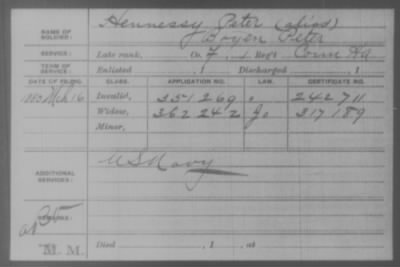 NAME OF SOLDIER: Hennessy Peter (alias)
Boyen Peter
SERVICE: Late rank, Co. F, 1 Reg't Conn H A
TERM OF SERVICE: Enlisted , 1 Discharged , 1
DATE OF FILING. CLASS. APPLICATION NO. LAW. CERTIFICATE NO.
1880 Mch 16 Invalid, 351269 242711
Widow, 362242 317189
Minor,
ADDITIONAL SERVICES: U S Navy
REMARKS:
M. M. Died , 1 , at